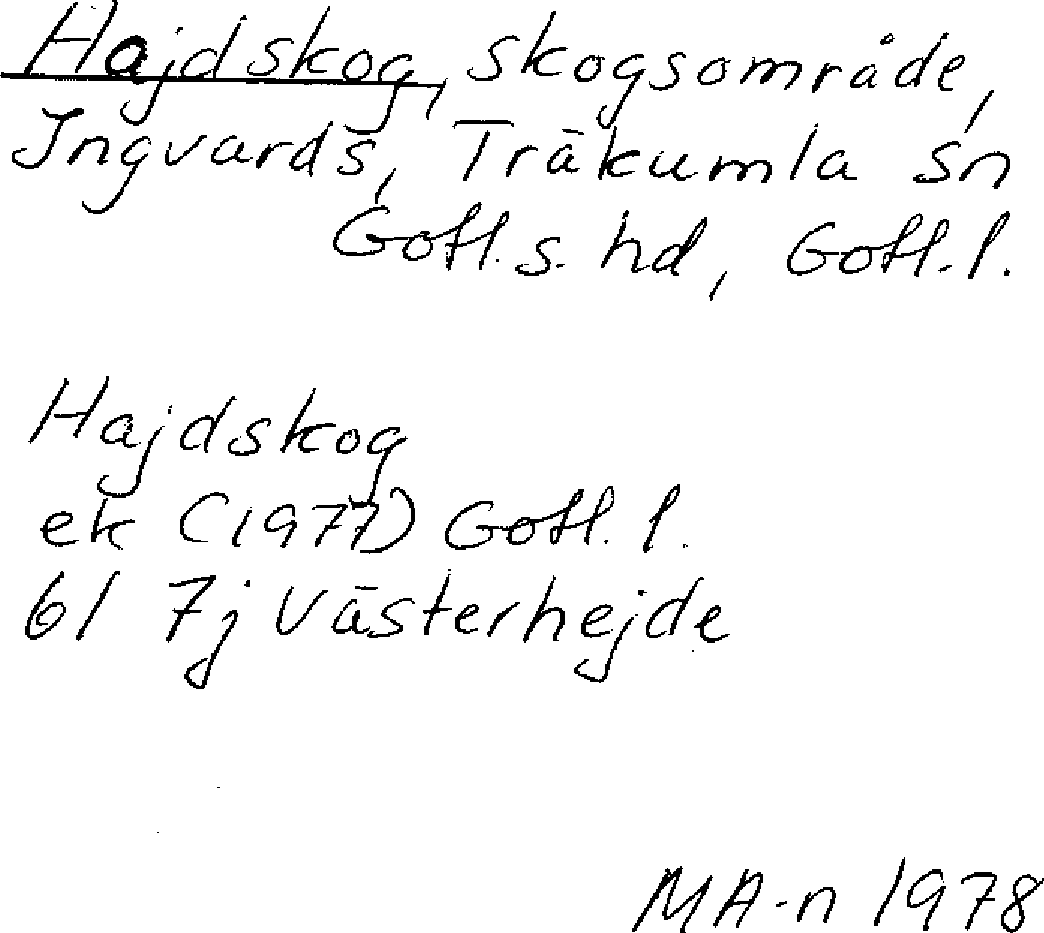 Hajdskog, skogsområde,
Ingvards, Träkumla sn
Gotl. s. hd, Gotl. l.
Hajdskog
ek (1977) Gotl. l.
6I 7j Västerhejde
MA-n 1978